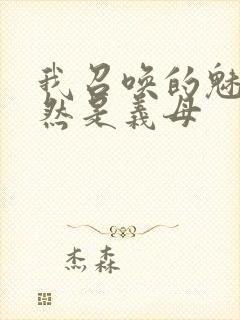 我召唤的魅
然是義母
杰森